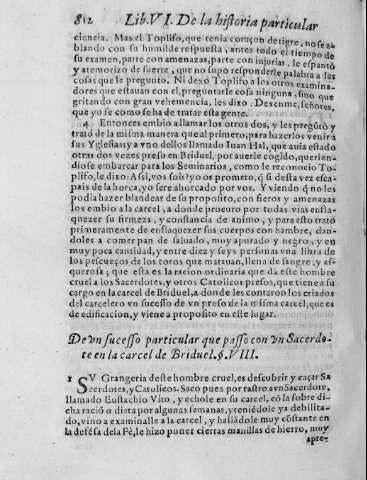 812 Lib.VI. De la historia particular
ciencia. Mas el Toplifo, que tenia coraçon de tigre, no se ablando
blando con su humilde respuesta, antes todo el tiempo de
su examen, parte con amenazas, parte con injurias, le espantò
y atemorizo de suerte, que no supo responderle palabra a las
cosas que le pregunto. Ni dexo Toplifo a los otros examinadores
dores que estauan con el, preguntarle cosa ninguna, sino que
gritando con gran vehemencia, les dixo: Dexenme, señores,
que yo se como se ha de tratar esta gente.
4 Entonces embio a llamar los otros dos, y les pregūtò y
tratò de la misma manera que al primero, para hazerlos venir à
sus Yglesias: y a vno dellos llamado Iuan Hal, que auia estado
otras dos vezes preso en Briduel, por auerle cogido, queriendose
diose embarcar para los Seminarios, como le reconocio Toplifo,
lifo, le dixo: Assi, vos sois? yo os prometo, q̃ si desta vez escapais
pais de la horca, yo sere ahorcado por vos. Y viendo q̃ no les
podia hazer blandear de su proposito, con fieros y amenazas
los embio a la carcel, a donde procuro por todas vias enflaquezer
quezer su firmeza, y constancia de animo, y para esto tratò
primeramente de enflaquezer sus cuerpos con hambre, dandoles
doles a comer pan de saluado, muy apurado y negro, y en
muy poca cantidad, y entre diez y seys personas vna libra de
los pescueços de los toros que matauan, llena de sangre, y asquerosa;
querosa; que esta es la racion ordinaria que da este hombre
cruel a los Sacerdotes, y otros Catolicos presos, que tiene a su
cargo en la carcel de Briduel, a donde les contaron los criados
del carcelero vn sucesso de vn preso de la misma carcel, que es
de edificacion, y viene a proposito en este lugar.
De vn sucesso particular que passò con vn Sacerdo-
te en la carcel de Briduel. §. VIII.
1 SV Grangeria deste hombre cruel, es descubrir y caçar Sa
cerdotes, y Catolicos. Saco pues por rastro a vn Sacerdote,
llamado Eustachio Vito, y echole en su carcel, cō la sobre di-
cha raciō o dieta por algunas semanas, y teniēdole ya debilita-
do, vino a examinalle a la carcel, y hallādole muy cōstante en
la defēsa dela Fè, le hizo poner ciertas manillas de hierro, muy
apre-